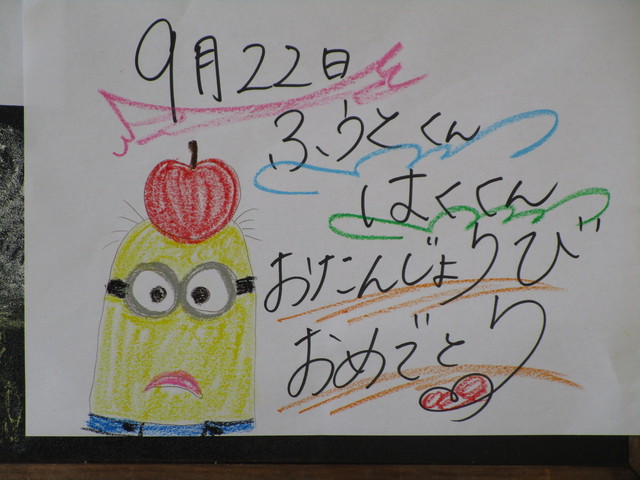 9月22日
ふうとくん
はくくん
おたんじょうび
おめでとう